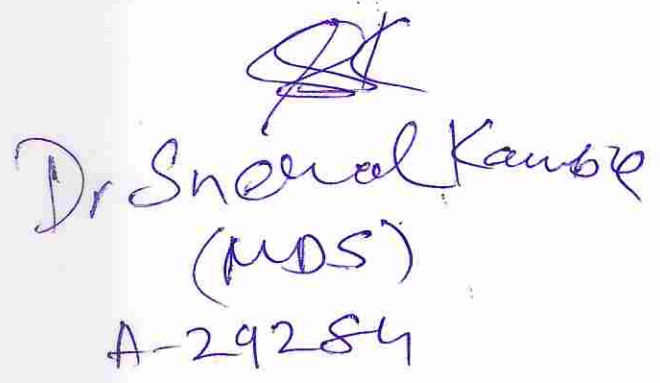 Dr Snehal Kamble
(MDS)
A-29284